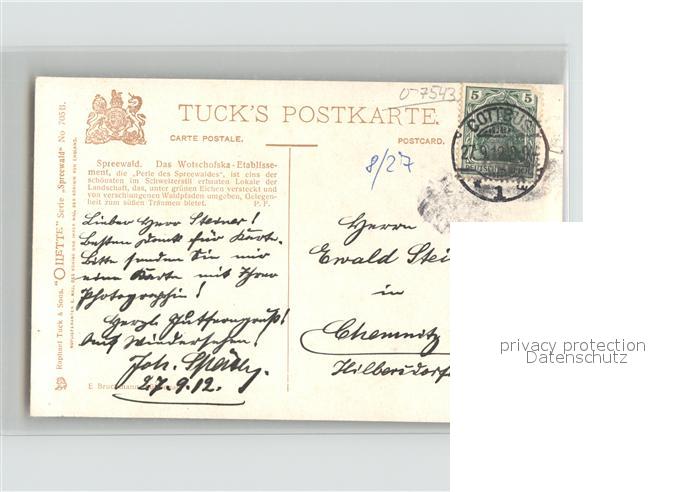 o-7543
TUCK'S POSTKARTE.
CARTE POSTALE.
POSTCARD.
5 5
COTTBUS
27.9.12
1
8/27
Spreewald. Das Wotschofska-Etablisse-
ment, die „Perle des Spreewaldes", ist eins der
schönsten im Schweizerstil erbauten Lokale der
Landschaft, das, unter grünen Eichen versteckt und
von verschlungenen Waldpfaden umgeben, Gelegen-
heit zum süßen Träumen bietet. P. F.
Lieber Herr Steiner!
Besten Dank für Karte.
Bitte senden Sie mir
eine Karte mit Ihrer
Photographie!
Herzl.
Auf Wiedersehen!
Joh.
27.9.12.
Herrn
Ewald Stei
in
Chemnitz
Hilbersdorf
E. Bruckmann
Raphael Tuck & Sons. "OILETTE" Serie „Spreewald" No 705B.
privacy protection
Datenschutz